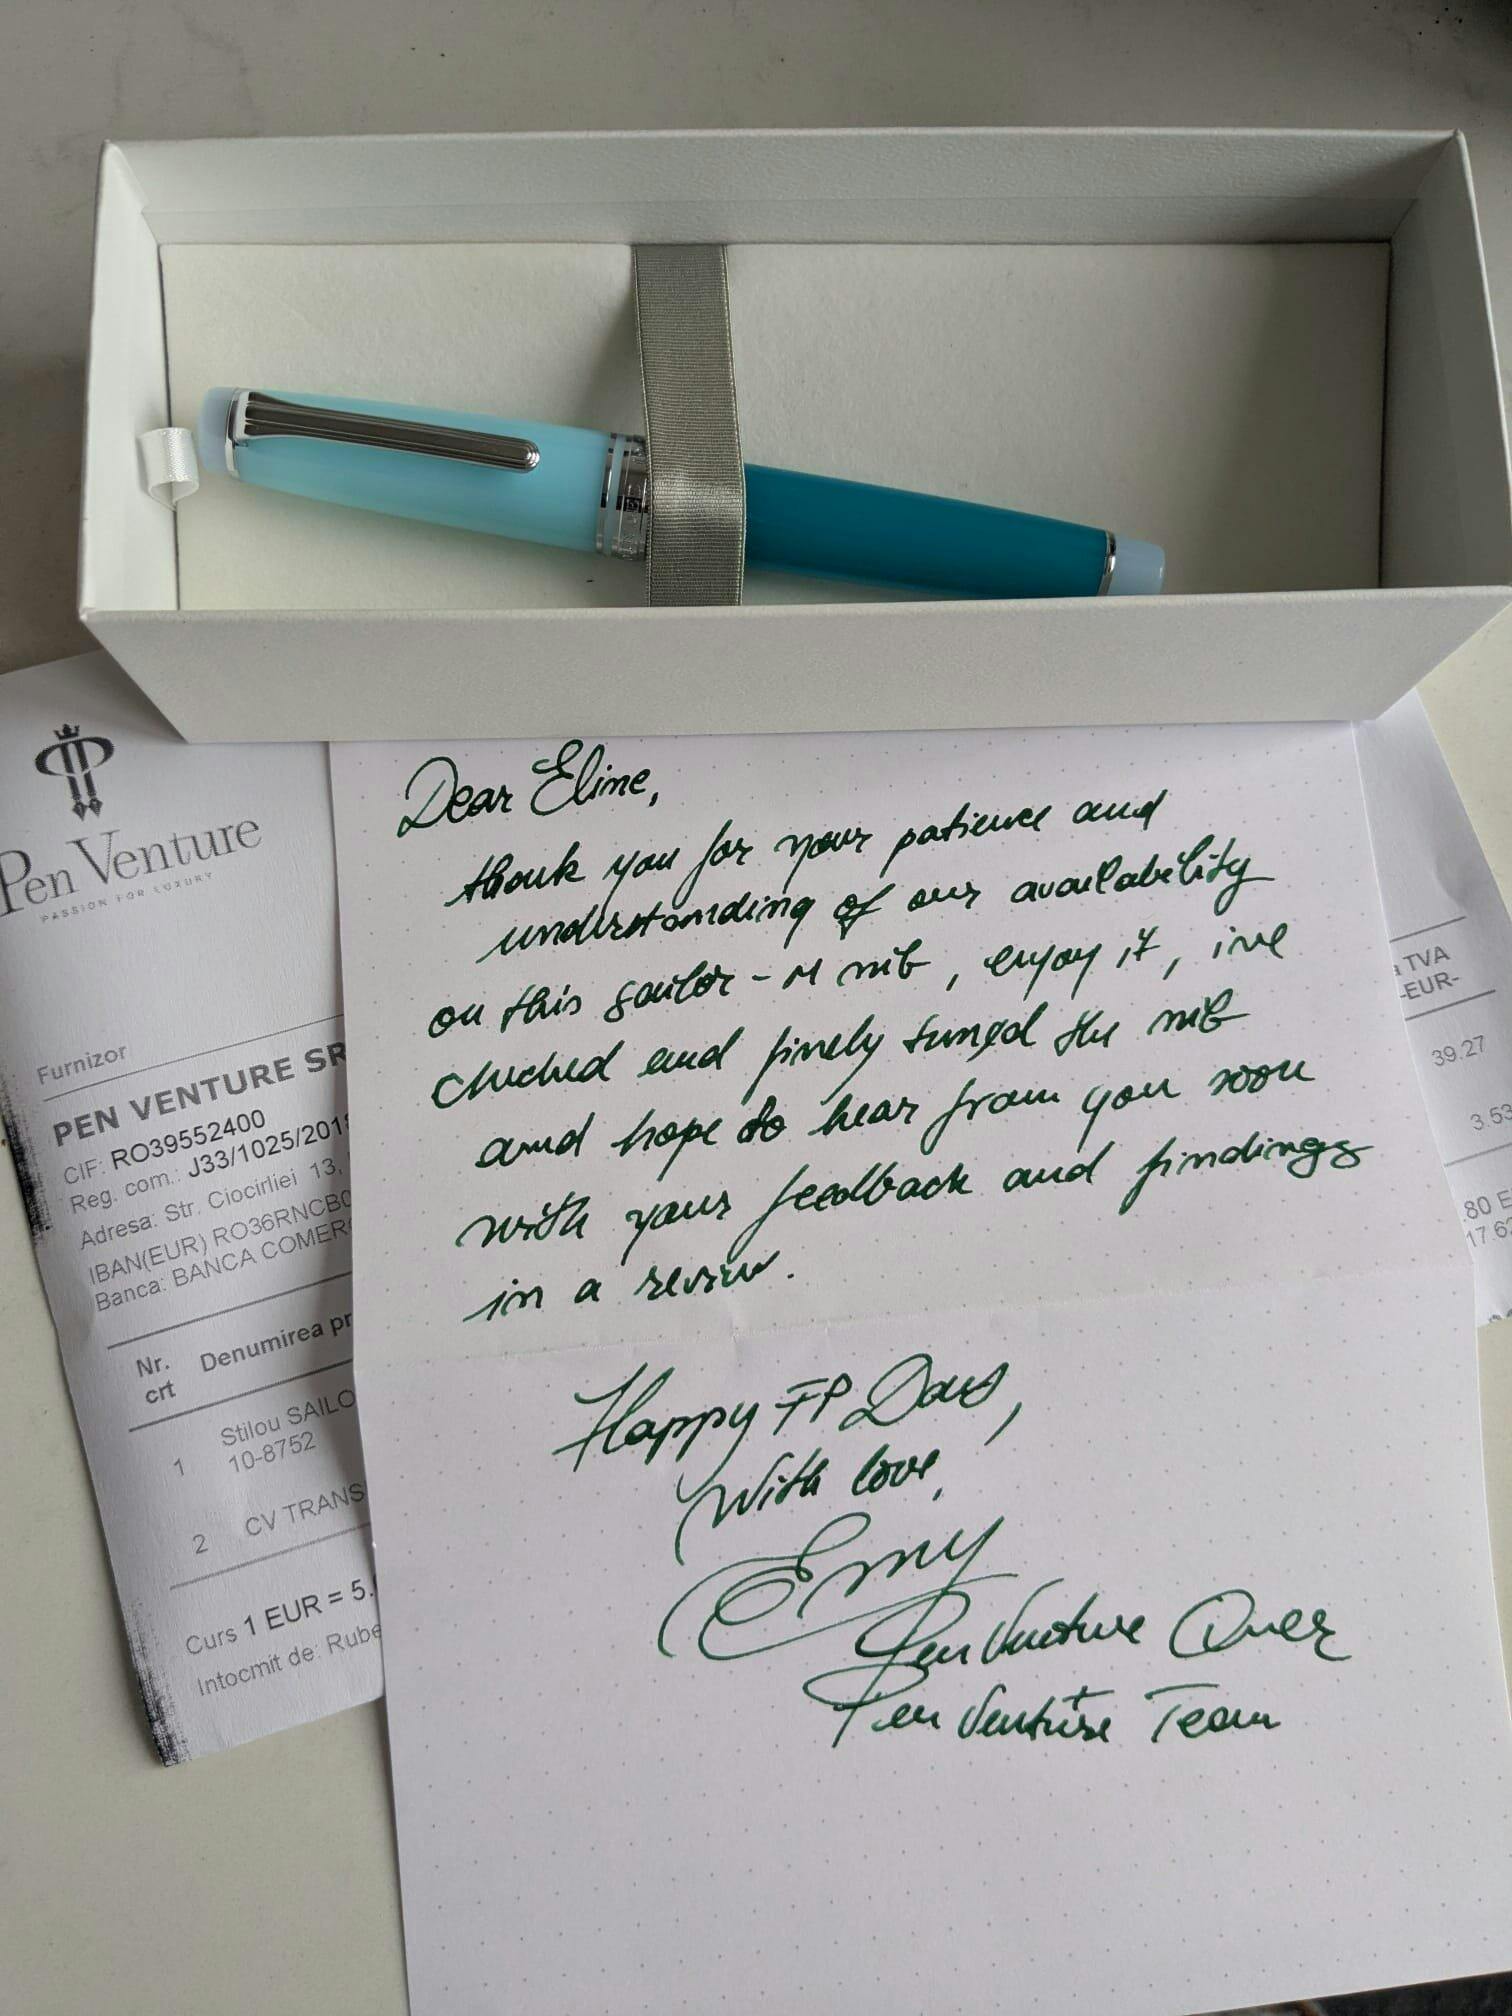 Pen Venture
PASSION FOR LUXURY
Furnizor
PEN VENTURE SR
CIF: RO39552400
Reg. com.: J33/1025/201
Adresa: Str. Ciocirliei 13,
IBAN(EUR) RO36RNCB0
Banca: BANCA COMER
Nr.
crt
Denumirea pr
1 Stilou SAILO
10-8752
2 CV TRANS
Curs 1 EUR = 5.
Intocmit de: Rube
Dear Eline,
thank you for your patience and
understanding of our availability
on this sailor - M nib, enjoy it, ive
checked and finely tuned the nib
and hope to hear from you soon
with your feedback and findings
in a review.
Happy FP Days,
With love,
Emy
Pen Venture Owner
Pen Venture Team
TVA
-EUR-
39.27
3.53
.80 E
17.6